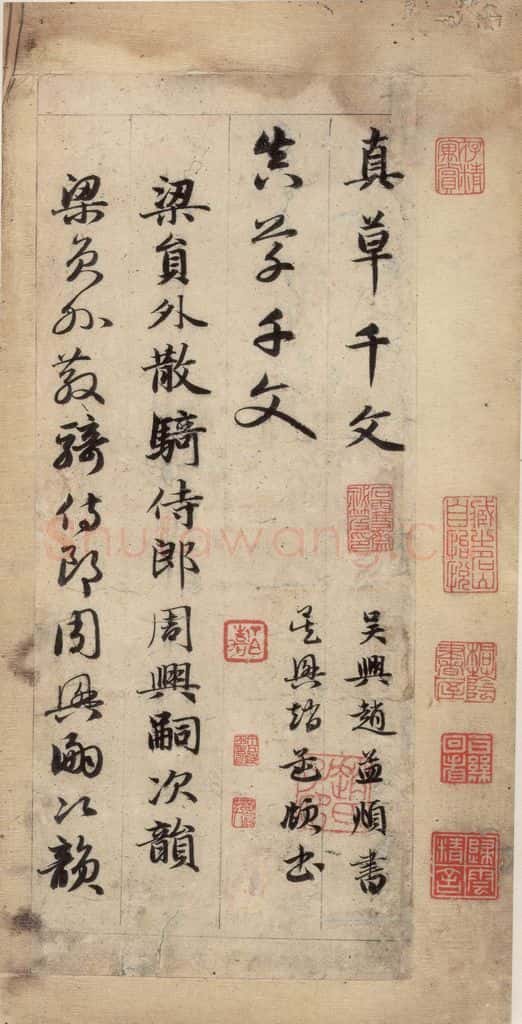 真草千文 吳興趙孟頫書
真草千文 吳興趙孟頫書
梁員外散騎侍郎周興嗣次韻
梁員外散騎侍郎周興嗣次韻